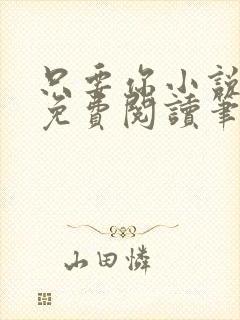 只要你小說
免費閱讀筆
山田憐